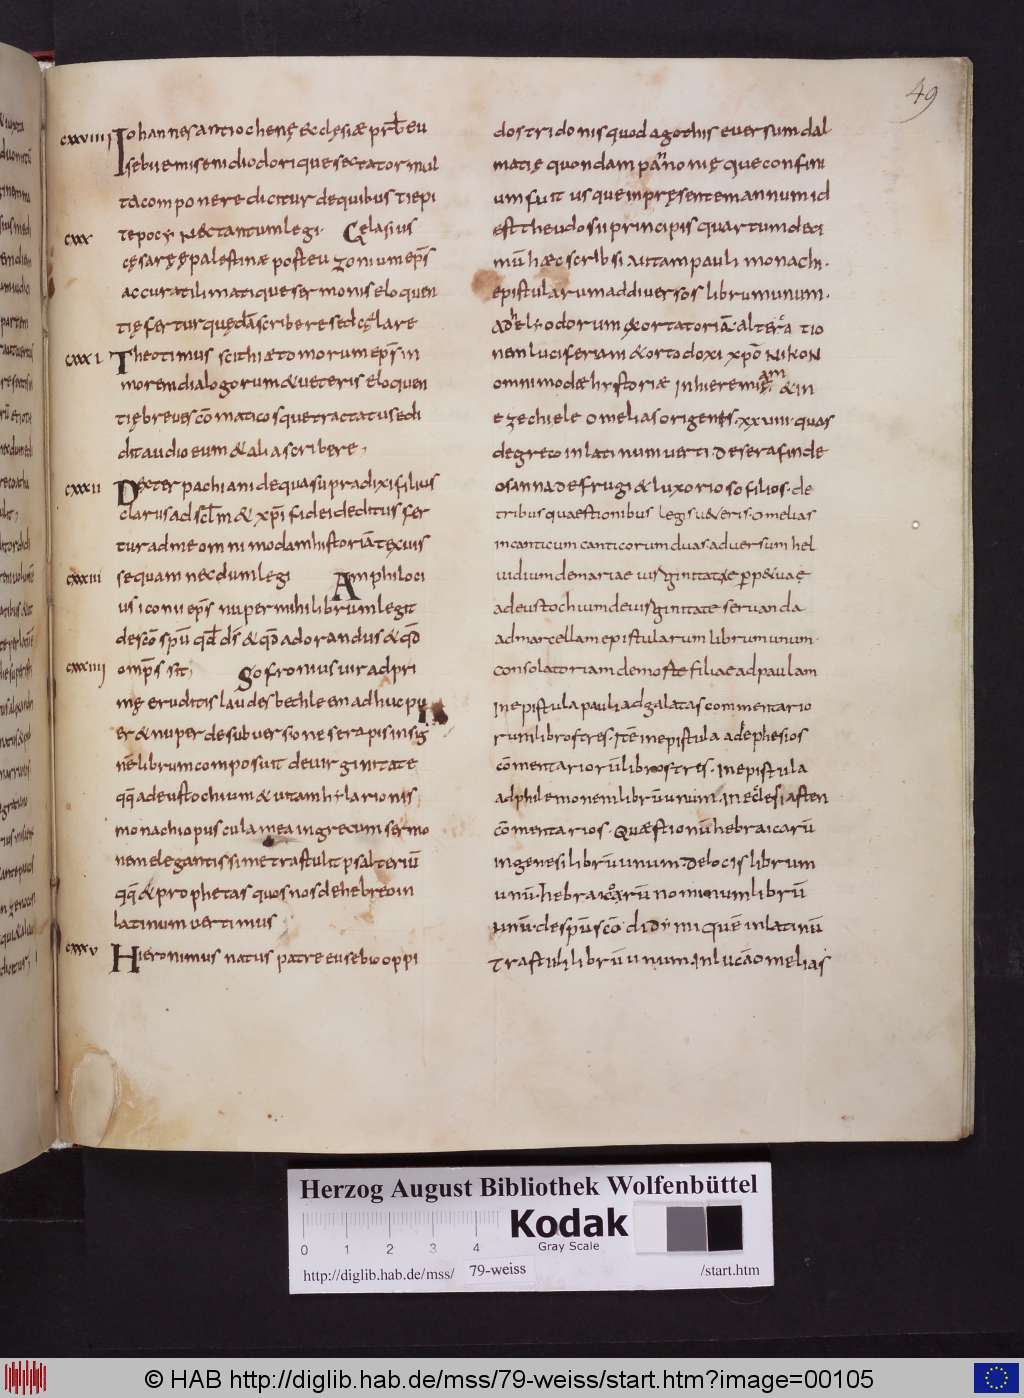 49
cxxviiii Iohannes antiochenę ecclęsiæ prƀt eu
sebii emiseni diodorique sectator mul
ta componere dicitur dequibus tiepi
cxxx tepocẏ nectantumlegi· Gęlasius
cęsaręę palestinæ posteu zonium ep̄s
accurati limatique sermonis eloquen
tię fertur quędā scribere sed cęlare
cxxxi Theotimus scithiæ tomorum ep̄s in
morem dialogorum & ueteris eloquen
tię breues cōmaticosque tractatus edi
dit audio eum & alia scribere,
cxxxii Dexter pachiani dequa sup̄radixi filius
clarus ad sc̄lm & xp̄i fidei deditus fer
tur ad me omnimodam historiā texuis
cxxxiii se quam necdum legi Amphiloci
us iconii ep̄s nuper mihi librum legit
desc̄o sp̄u qd̄ d̄s & qd̄ adorandus & qd̄
cxxxiiii omp̄s sit, Sofronius uir adpri
mę eruditis laudes bethleem adhuc pu
er & nuper desubuersione serapis insig
nē librum composuit deuirginitate
qq̄ adeustochium & uitam hilarionis
monachi opuscula mea ingrecum sermo
nem elegantissime transtulit psalteriū
qq̄ & prophetas quos nos dehebreo in
latinum uertimus
cxxxv Hieronimus natus patre eusebio oppi
do stridonis quod agothis euersum dal
matię quondam pannonięque confini
um fuit usque inpręsentem annum id
est theudosii principis quartumdeci
mū hæc scribsi uitam pauli monachi·
epistularum addiuersos librum unum·
adheliodorum exortatoriā· altercatio
nem luciferiani & ortodoxi xp̄o nikon
omnimodæ hystoriæ inhieremiam & in
ezechiele omelias origenis·xxuiii·quas
degreco inlatinum uerti deserafin de
osanna defrugi & luxorioso filios· de
tribus quaestionibus legis ueteris· omelias
incanticum canticorum duas aduersum hel
uidium demariae uirginitate perpetua
adeustochium deuirginitate seruanda
admarcellam epistularum librum unum·
consolatoriam demorte filiae adpaulam
inepistula pauli adgalatas commentario
rum libros tres· Itē inepistula adephesios
cōmentariorū libros tres· inepistula
adphilemonem librū unum. In ecclesiasten
cōmentarios· Quæstionū hebraicarū
ingenesi librū unum delocis librum
unū· hebraicarū nominum librū
unū· desp̄u sc̄o didimi quē inlatinū
transtuli librū unum. inlucā omelias
Herzog August Bibliothek Wolfenbüttel
0 1 2 3 4
Kodak
Gray Scale
http://diglib.hab.de/mss/ 79-weiss /start.htm
© HAB http://diglib.hab.de/mss/79-weiss/start.htm?image=00105